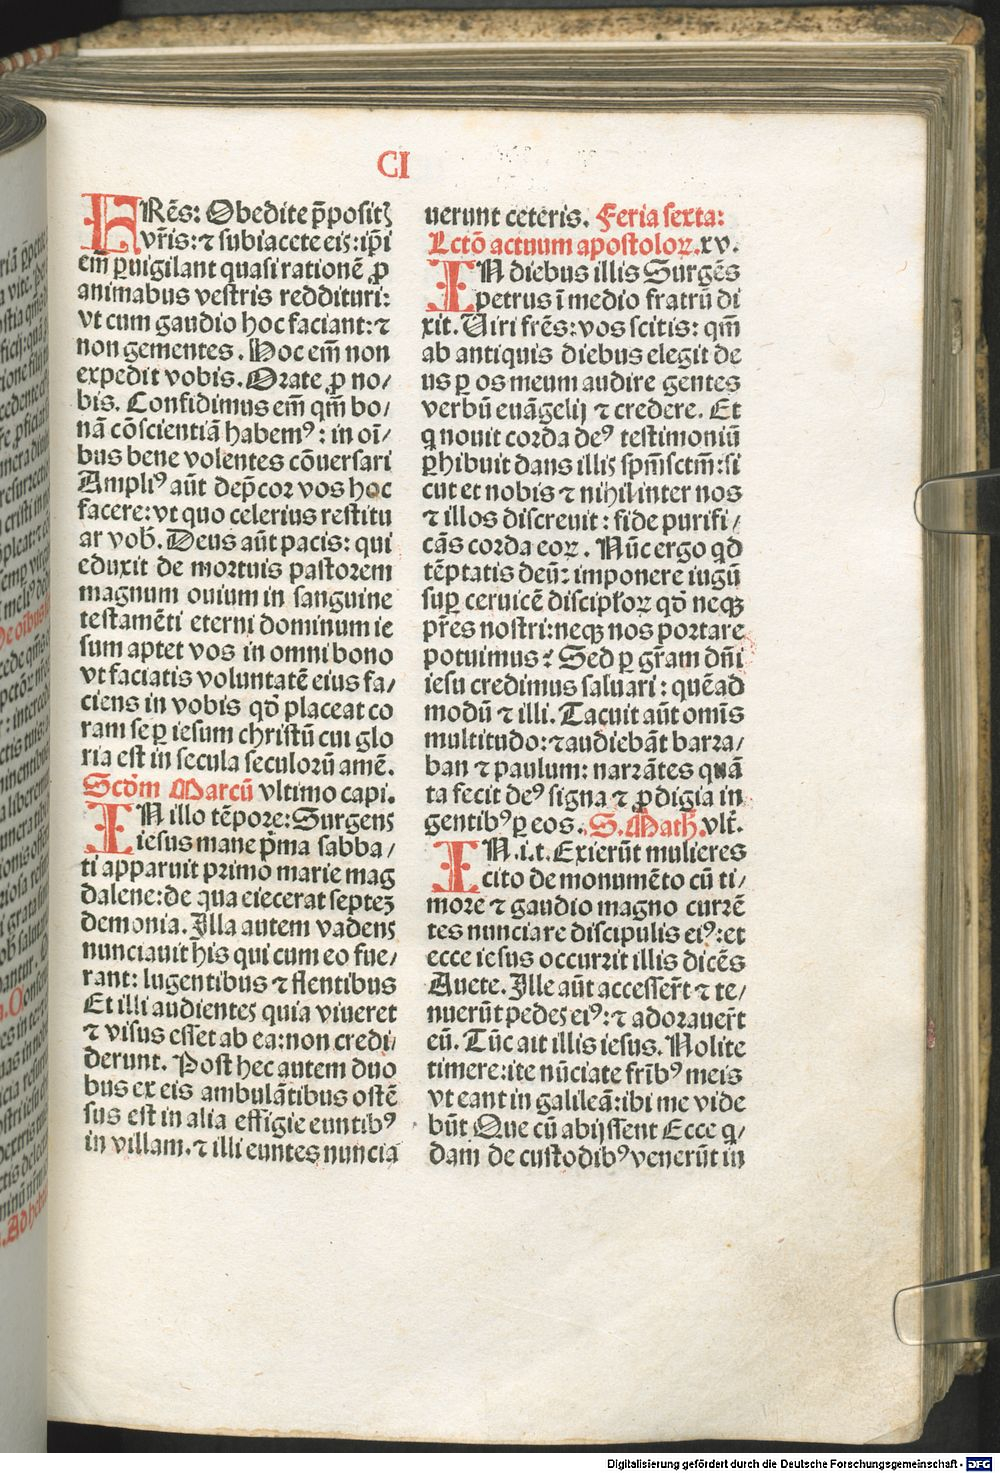 CI
FRēs: Obedite p̄posit⁊
vr̄is: ⁊ subiacete eis: ip̄i
em̄ ꝑuigilant quasi rationē ꝓ
animabus vestris reddituri:
vt cum gaudio hoc faciant: ⁊
non gementes. Hoc em̄ non
expedit vobis. Orate ꝓ no/
bis. Confidimus em̄ qm̄ bo/
nā cōscientiā habemꝰ: in oī/
bus bene volentes cōuersari
Ampliꝰ aūt dep̄cor vos hoc
facere: vt quo celerius restitu
ar vob̄. Deus aūt pacis: qui
eduxit de mortuis pastorem
magnum ouium in sanguine
testamēti eterni dominum ie
sum aptet vos in omni bono
vt faciatis voluntatē eius fa/
ciens in vobis qd̄ placeat co
ram se ꝑ iesum christū cui glo
ria est in secula seculorū amē.
Scd̄m Marcū vltimo capi.
IN illo tēpore: Surgens
iesus mane p̄ma sabba/
ti apparuit primo marie mag
dalene: de qua eiecerat septeꝫ
demonia. Illa autem vadens
nunciauit his qui cum eo fue/
rant: lugentibus ⁊ flentibus
Et illi audientes quia viueret
⁊ visus esset ab ea: non credi/
derunt. Post hec autem duo
bus ex eis ambulātibus ostē
sus est in alia effigie euntibꝰ
in villam. ⁊ illi euntes nuncia
uerunt ceteris. Feria sexta:
Lctō actuum apostoloꝝ. xv.
IN diebus illis Surgēs
petrus ī medio fratrū di
xit. Uiri frēs: vos scitis: qm̄
ab antiquis diebus elegit de
us ꝑ os meum audire gentes
verbū euāgelij ⁊ credere. Et
q̄ nouit corda deꝰ testimoniū
ꝑhibuit dans illis sp̄m sctm̄: si
cut et nobis ⁊ nihil inter nos
⁊ illos discreuit: fide purifi/
cās corda eoꝝ. Nūc ergo qd
tēptatis deū: imponere iugū
suꝑ ceruicē discipłoꝝ qd̄ neqꝫ
pr̄es nostri: neqꝫ nos portare
potuimus? Sed ꝑ gr̄am dn̄i
iesu credimus saluari: quēad
modū ⁊ illi. Tacuit aūt omīs
multitudo: ⁊ audiebāt barra/
ban ⁊ paulum: narrātes quā
ta fecit deꝰ signa ⁊ ꝓdigia in
gentibꝰ ꝑ eos. S. Math̄. vlt̄.
IN .i.t. Exierūt mulieres
cito de monumēto cū ti/
more ⁊ gaudio magno currē
tes nunciare discipulis eiꝰ: et
ecce iesus occurrit illis dicēs
Auete. Ille aūt accesser̄t ⁊ te/
nuerūt pedes eiꝰ: ⁊ adorauer̄t
eū. Tūc ait illis iesus. Nolite
timere: ite nūciate frīb̄ꝰ meis
vt eant in galileā: ibi me vide
būt Que cū abijssent Ecce q̄/
dam de custodibꝰ venerūt in
Digitalisierung gefördert durch die Deutsche Forschungsgemeinschaft - DFG